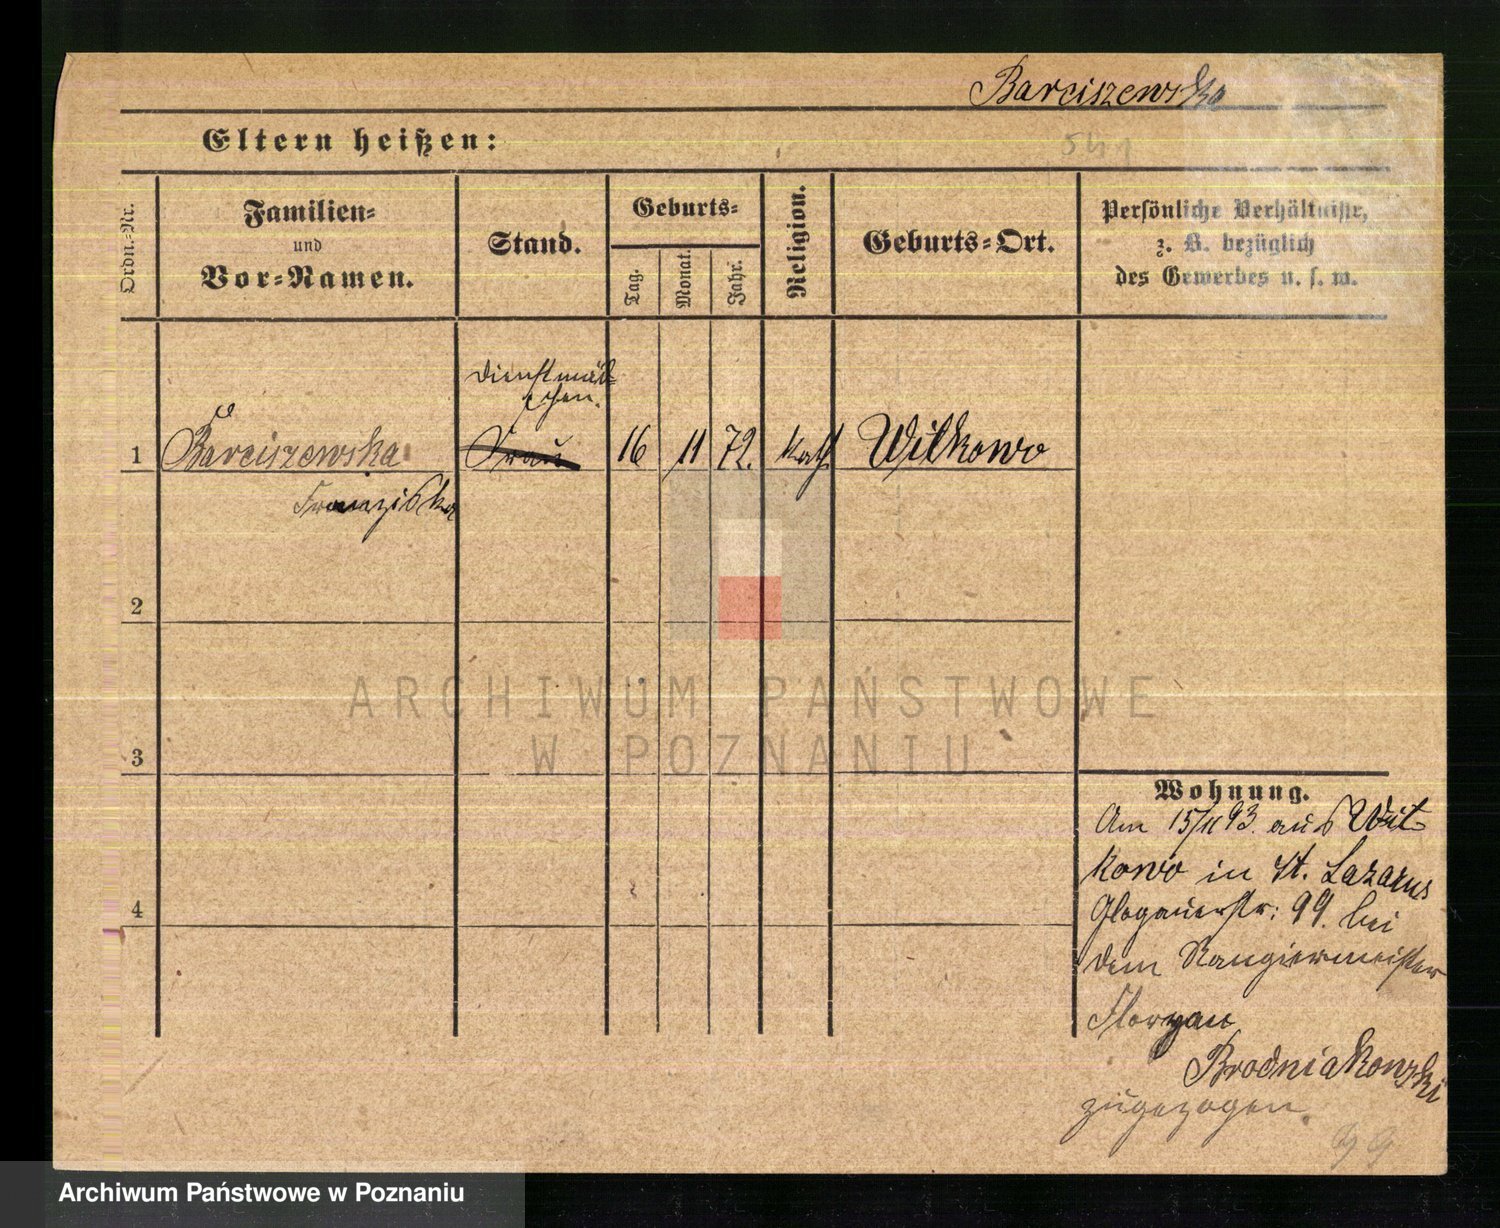 Barciszewska
Eltern heißen:
541
Ordn.-Nr.
Familien-
und
Vor-Namen.
Stand.
Geburts-
Tag.
Monat.
Jahr.
Religion.
Geburts-Ort.
Persönliche Verhältnisse,
z. B. bezüglich
des Gewerbes u. s. w.
Dienstmäd
chen.
1 Barciszewska Frau 16 11 72. kath Witkowo
Franziska
2
ARCHIWUM PAŃSTWOWE
W POZNANIU
3
4
Wohnung.
Am 15/11 93. aus Wit-
kowo in St. Lazarus
Glogauerstr: 99. bei
dem Rangiermeister
Floryan
Brodniakowski
zugezogen.
Archiwum Państwowe w Poznaniu